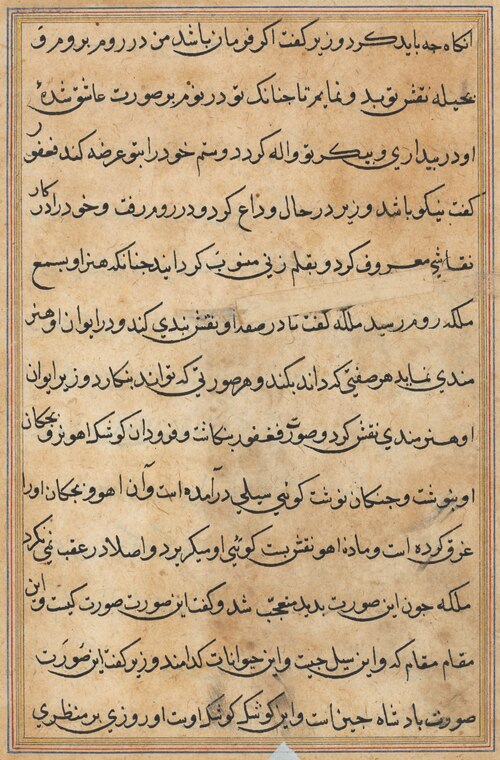 انکاه جه باید کرد وزیر کفت اکر فرمان باشد من در روم بروم و
بحیله نقش تو بد و نمایم تا جنانک تو در نوم بر صورت عاشق شدهٔ
او در بیداری و پیکر تو واله کردد و ستم خود را بتو عرضه کند فغفور
کفت نیکو باشد وزیر در حال وداع کرد و در روم رفت و خود را در کار
نقاشی معروف کرد و بقلم زنی منسوب کردانید جنانکه هنر او بسمع
ملکه روم رسید ملکه کفت تا در صفه او نقش بندی کند و در ایوان او هنر
مندی نماید هر صفتی که داند بکند و هر صورتی که تواند بنکارد وزیر ایوان
او هنرمندی نقش کرد و صورت فغفور بنکاشت و فرود آن کوشک اهو نر و بجکان
او بنوشت و جنکان نوشت کوئی سیلی درآمده است و آن اهو و بجکان او را
غرق کرده است و ماده اهو نقش بست کوئی او میکریزد و اصلا در عقب نمی نکرد
ملکه جون این صورت بدید متعجب شد و کفت این صورت صورت کیست و این
مقام مقام که و این سیل جیست و این حیوانات کدامند وزیر کفت این صورت
صورت بادشاه جین است و این کوشک کوشک اوست او روزی بر منظری